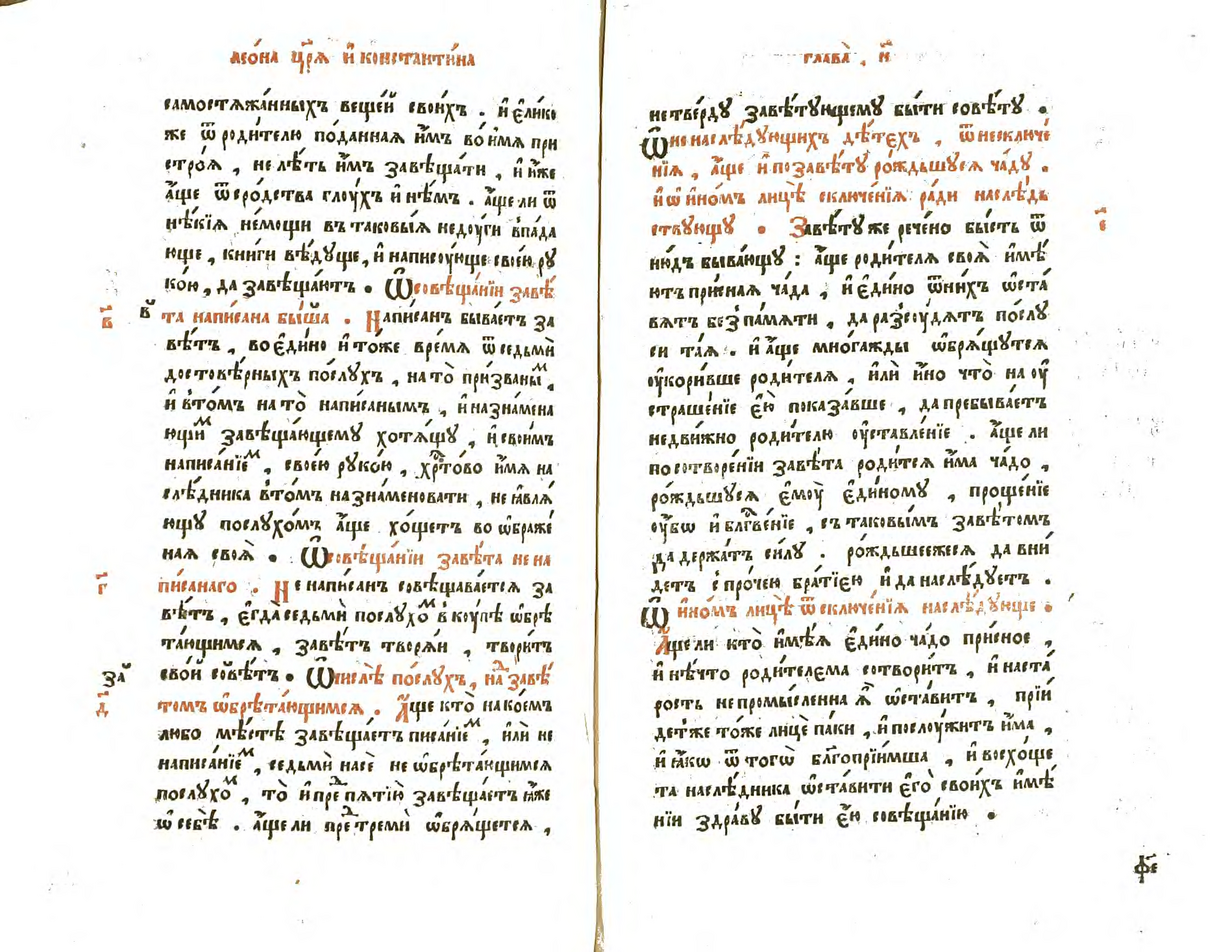 леѡ́на цр҃ѧ̀ и҆ константи́на
самостѧжа́нныхъ веще́й свои́хъ . и҆ є҆ли́ко
же ѿ роди́телю по́даннаѧ и҆̀мъ во и҆́мѧ при
стро́ѧ , не лѣ́ть и҆̀мъ завѣща́ти , и҆ и҆́же
а҆́ще ѿ со́родства глꙋ́хъ и҆ нѣ́мъ . а҆́ще ли ѿ
нѣ́кїѧ не́мощи въ таковы́ѧ недꙋ́ги впа́да
юще , кни́ги вѣ́дꙋще , и҆ написꙋ́юще свое́ю рꙋ
ко́ю , да завѣща́ютъ . Ѿ совѣща́нїи завѣ́
в҃ в҃
та напи́сана бы́вша . Напи́санъ быва́етъ за
вѣ́тъ , во є҆ди́но и҆ то́же вре́мѧ ѿ седьмѝ
достовѣ́рныхъ по́слꙋхъ , на то̀ при́званыⷨ ,
и҆ в то́мъ на то̀ напи́санымъ , и҆ назна́мена
ющиⷨ завѣща́ющемꙋ хотѧ́щꙋ , и҆ свои́мъ
написа́нїеⷨ , свое́ю рꙋко́ю , хрⷭ҇то́во и҆́мѧ на
слѣ́дника в то́мъ назна́меновати , не ꙗ҆влѧ́
ющꙋ по́слꙋхо́мъ а҆́ще хо́щетъ во ѡ҆браже́
наѧ своѧ̀ . Ѿ совѣща́нїи завѣ́та не на
г҃
пи́санаго . Не напи́санъ совѣщава́етсѧ за
вѣ́тъ , є҆гда̀ седьмѝ послꙋхо́ⷨ в кꙋ́пѣ ѡ҆брѣ
та́ющимсѧ , завѣ́тъ творѧ́и , твори́тъ
за҃
сво́й совѣ́тъ . Ѡ҆ числѣ̀ по́слꙋхъ , на завѣ́
д҃
томъ ѡ҆брѣта́ющимсѧ . А҆́ще кто̀ на ко́емъ
лю́бо мѣ́стѣ завѣща́етъ писа́нїеⷨ , и҆лѝ не
написа́нїеⷨ , седьмѝ на се́ не ѡ҆брѣта́ющимсѧ
послꙋхо́ⷨ , то̀ и҆ преⷣ пѧтїю̀ завѣща́етъ ꙗ҆́же
ѡ҆ себѣ̀ . а҆́ще ли преⷣ тремѝ ѡ҆брѧ́щетсѧ ,
глава̀ , и҃
не тве́рдꙋ завѣ́тꙋющемꙋ бы́ти совѣ́тꙋ .
Ѡ҆ не наслѣ́дꙋющихъ дѣ́тєхъ , ѿ не сключе́
нїѧ , а҆́ще и҆ по завѣ́тꙋ ро́ждьшꙋсѧ ча́дꙋ .
и҆ ѡ҆ и҆но́мъ лицѣ̀ сключе́нїѧ ра́ди наслѣ́дь
є҃
ствꙋющꙋ . Завѣ́тꙋ же рече́но бы́сть ѿ
ню́дъ быва́ющꙋ : а҆́ще роди́телѧ своѧ̀ и҆́мѣ
ютъ при́снаѧ ча́да , и҆ є҆ди́но ѿ ни́хъ ѡ҆ста́
вѧтъ без̾ па́мѧти , да разсꙋ́дѧтъ по́слꙋ
си та́ѧ . и҆ а҆́ще мно́гажды ѡ҆брѧ́щꙋтсѧ
ᲂу҆кори́вше роди́телѧ , и҆лѝ и҆́но что̀ на ᲂу҆
страше́нїе є҆́ю показа́вше , да пребыва́етъ
недви́жно роди́телю ᲂу҆ставле́нїе . а҆́ще ли
по сотворе́нїи завѣ́та роди́тсѧ и҆́ма ча́до ,
ро́ждьшꙋсѧ є҆мꙋ̀ є҆ди́номꙋ , проще́нїе
ᲂу҆́бѡ и҆ блгⷭ҇ве́нїе , съ таковы́мъ завѣ́томъ
да держа́тъ си́лꙋ . ро́ждьшеежесѧ да вни́
детъ с про́чею бра́тїєю и҆ да наслѣ́дꙋетъ .
Ѡ҆ и҆но́мъ лицѣ̀ ѿ сключе́нїѧ наслѣ́дꙋюще .
А҆́ще ли кто̀ и҆мѣ́ѧ є҆ди́но ча́до при́сное ,
и҆ нѣ́что роди́телєма сотвори́тъ , и҆ на ста́
рость не промы́сленна ѧ҆̀ ѡ҆ста́витъ , прїи́
детже то́же лицѐ па́ки , и҆ послꙋ́житъ и҆́ма ,
и҆ ꙗ҆́кѡ ѿ тогѡ̀ благопрїи́мша , и҆ восхо́ще
та наслѣ́дника ѡ҆ста́вити є҆го̀ свои́хъ и҆мѣ́
нїи здра́вꙋ бы́ти є҆́ю совѣща́нїю .
ф҃є